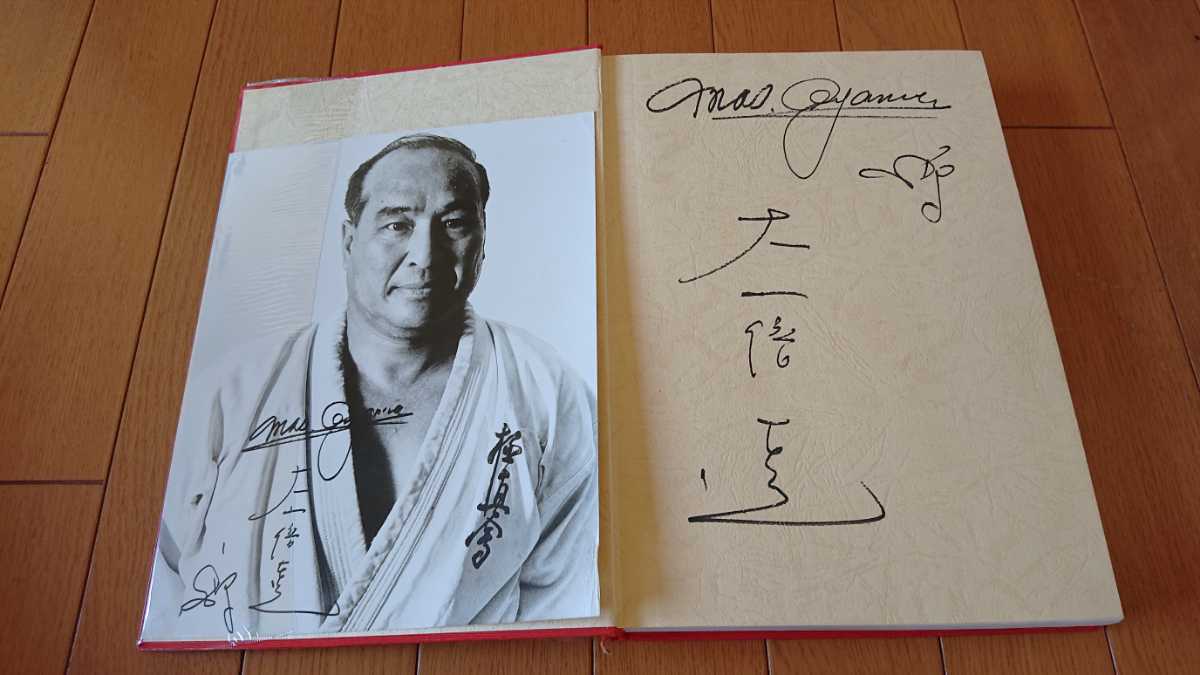 Mas. Oyama
大山倍達
極真會
Mas. Oyama
大山倍達